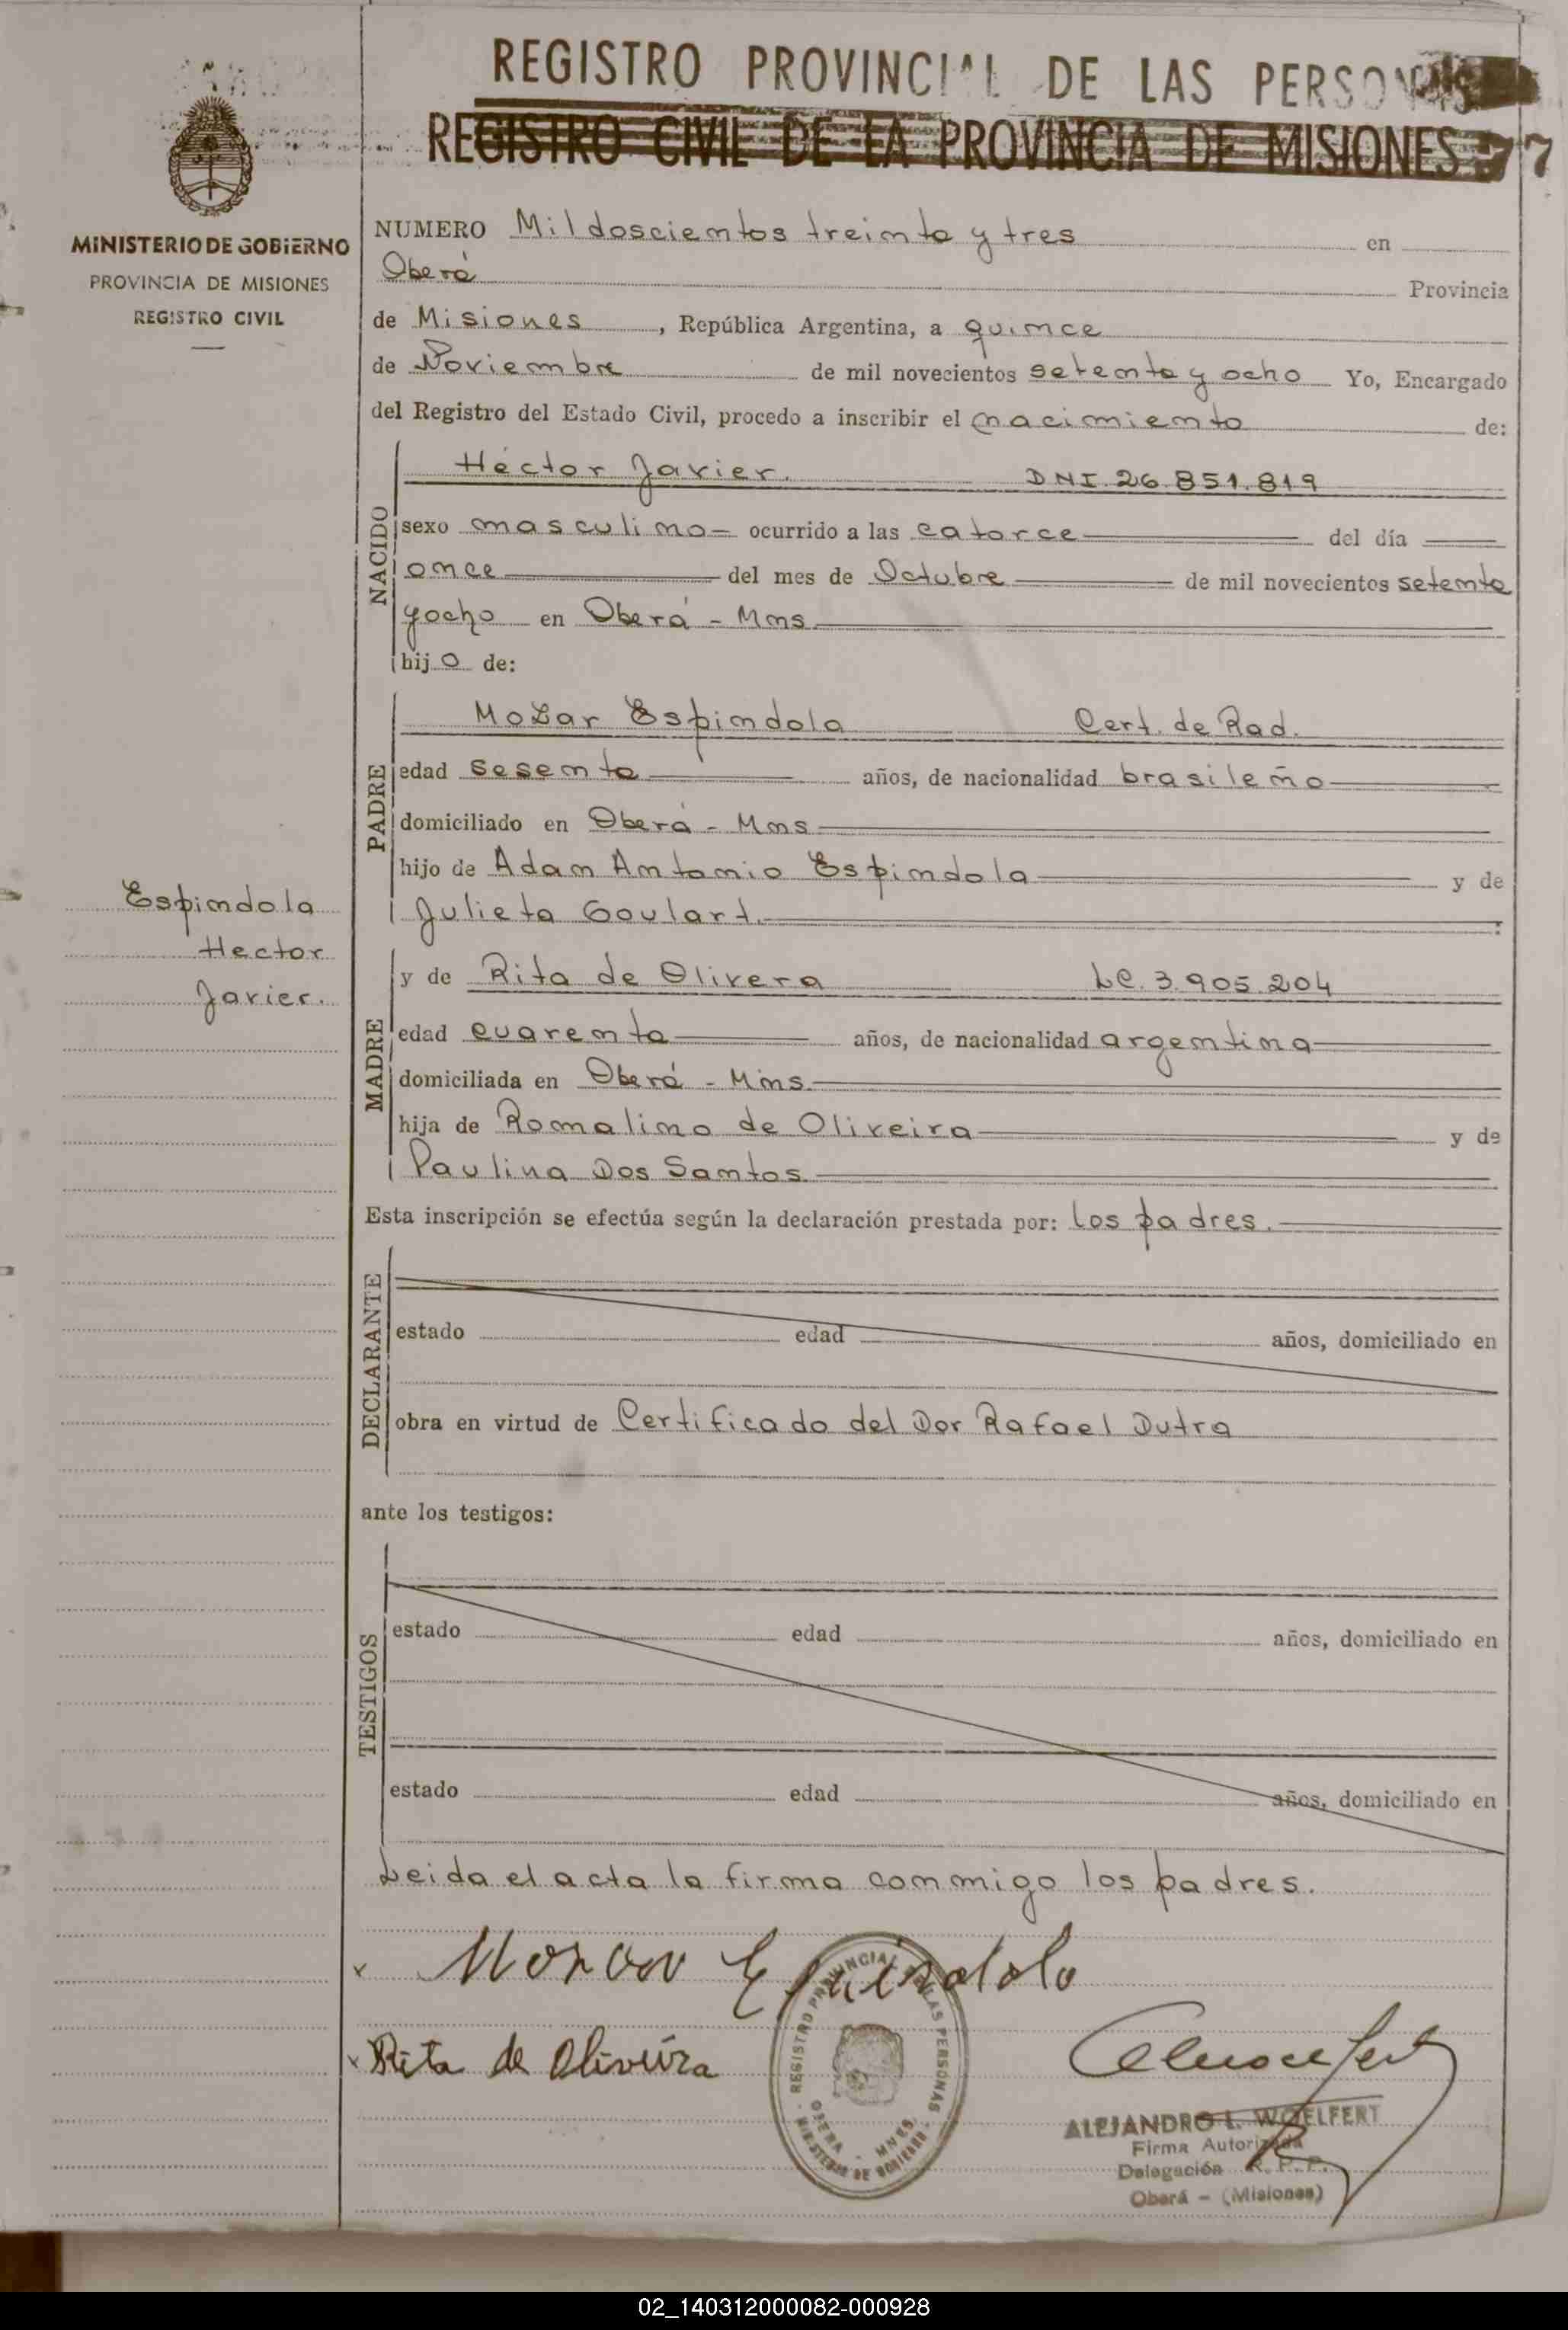 REGISTRO PROVINCIAL DE LAS PERSONAS
REGISTRO CIVIL DE LA PROVINCIA DE MISIONES
77
MINISTERIO DE GOBIERNO
PROVINCIA DE MISIONES
REGISTRO CIVIL
NUMERO Mil doscientos treinta y tres en
Oberá Provincia
de Misiones, República Argentina, a quince
de Noviembre de mil novecientos setenta y ocho Yo, Encargado
del Registro del Estado Civil, procedo a inscribir el nacimiento de:
NACIDO
Héctor Javier. DNI. 26.851.819
sexo masculino – ocurrido a las catorce del día
once del mes de Octubre de mil novecientos setenta
y ocho en Oberá - Mns.
hijo de:
PADRE
Mozar Espindola Cert. de Rad.
edad sesenta años, de nacionalidad brasileño
domiciliado en Oberá - Mns
hijo de Adan Antonio Espindola y de
Julieta Goulart.
Espindola
Hector
Javier.
MADRE
y de Rita de Olivera LC. 3.905.204
edad cuarenta años, de nacionalidad argentina
domiciliada en Oberá - Mns.
hija de Romalino de Oliveira y de
Paulina Dos Santos.
Esta inscripción se efectúa según la declaración prestada por: los padres.
DECLARANTE
estado edad años, domiciliado en
obra en virtud de Certificado del Dor Rafael Dutra
ante los testigos:
TESTIGOS
estado edad años, domiciliado en
estado edad años, domiciliado en
Leida el acta la firma conmigo los padres.
x Mozar Espindola
x Rita de Oliveira
REGISTRO PROVINCIAL DE LAS PERSONAS
OBERA - MNES.
MINISTERIO DE GOBIERNO
ALEJANDRO L. WOELFERT
Firma Autorizada
Delegación R. P. P.
Oberá - (Misiones)
02_140312000082-000928